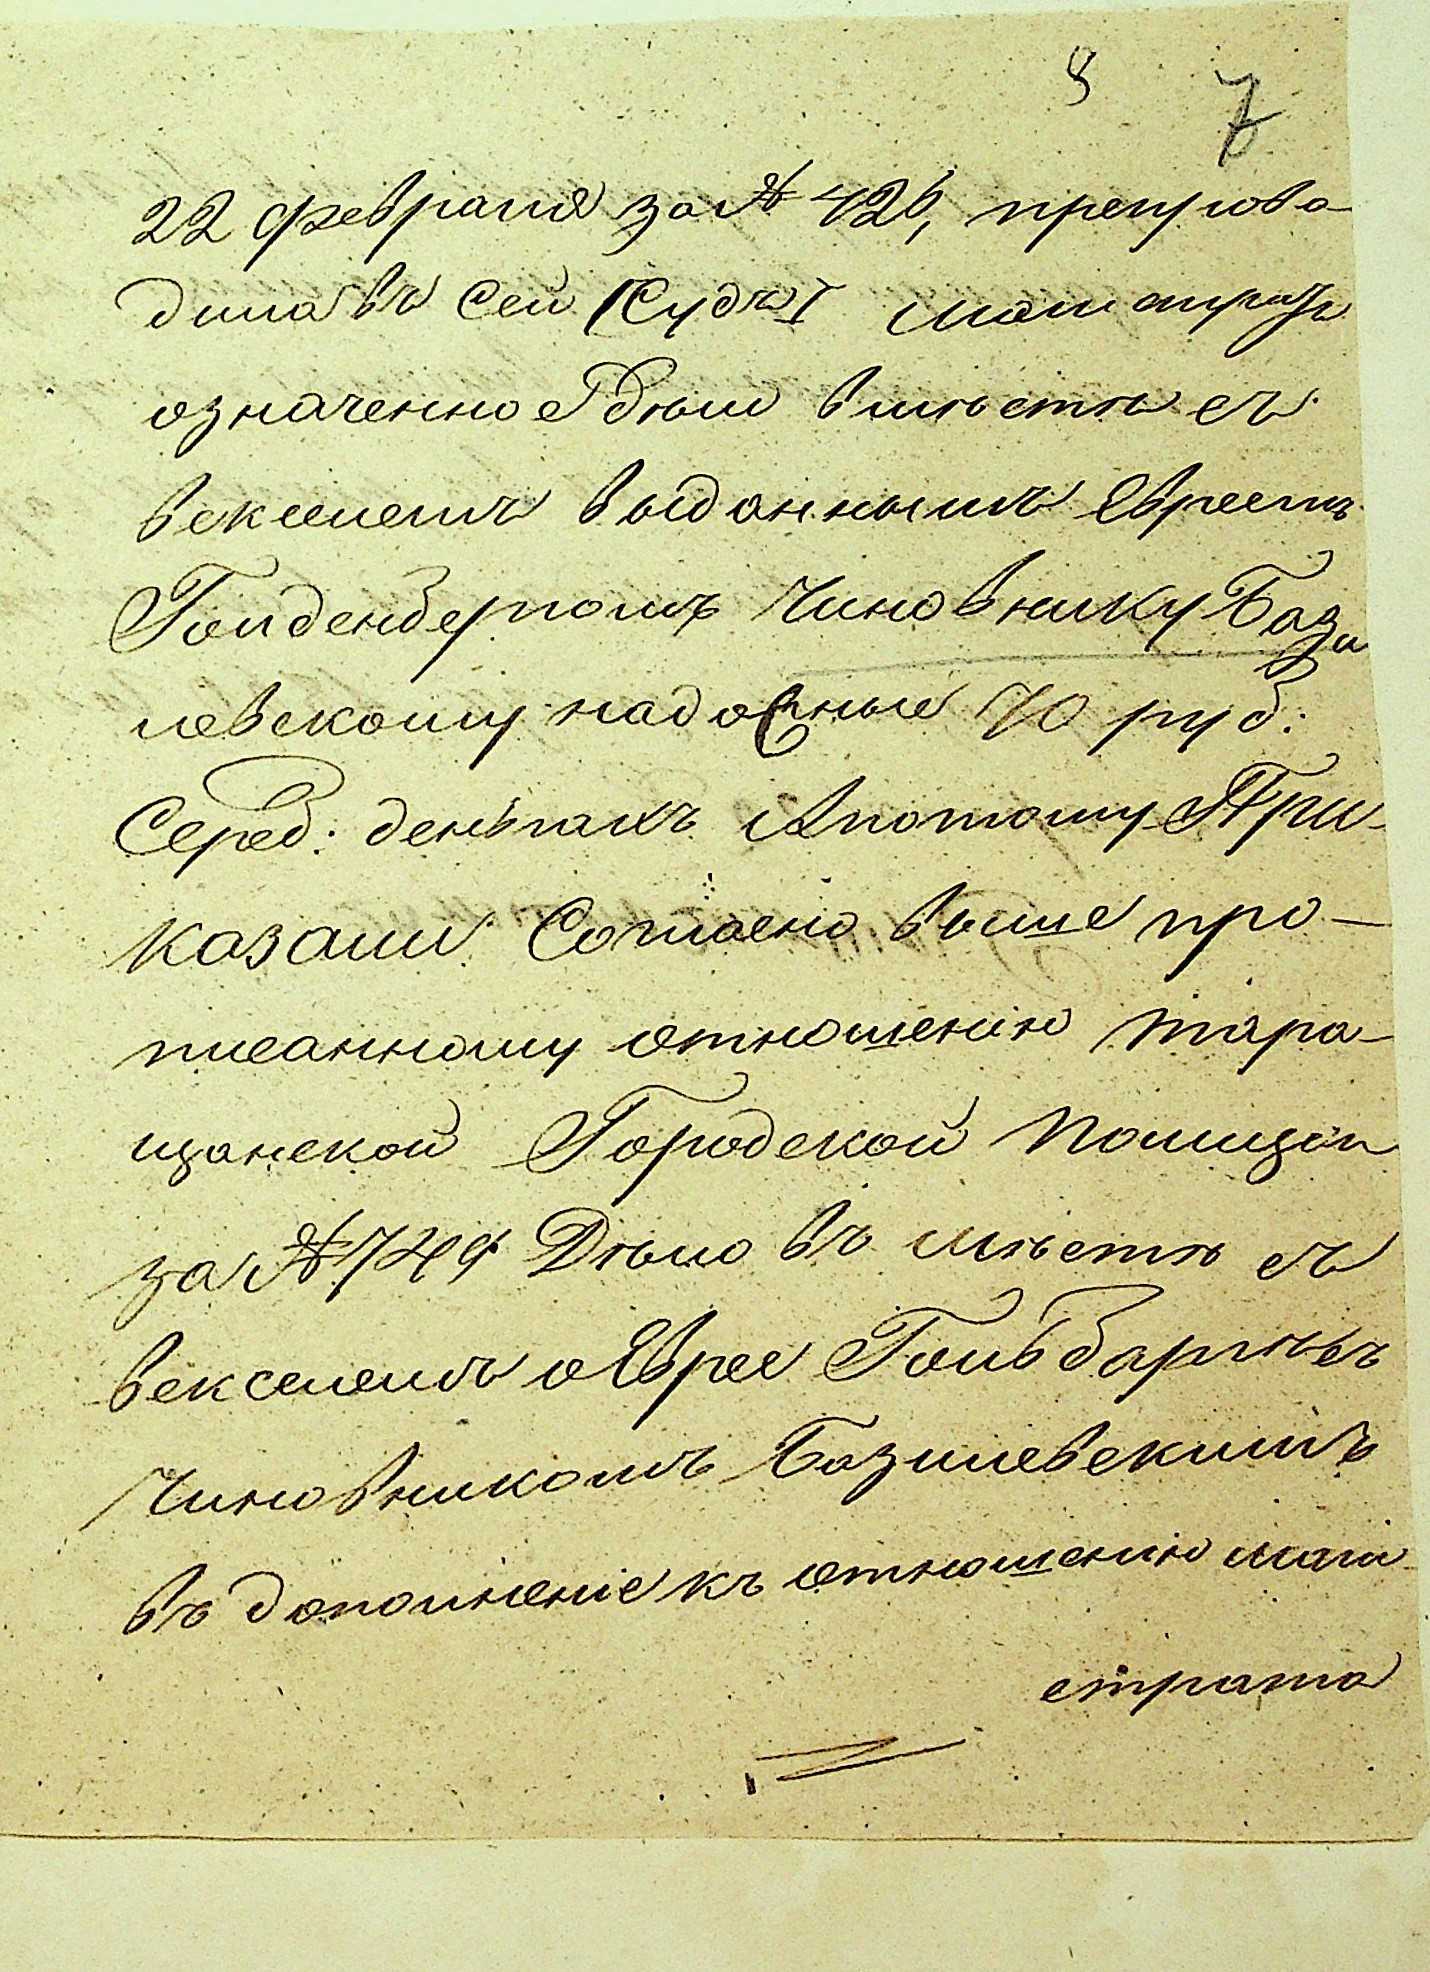 8 7
22 февраля за № 426, препрова-
дила въ сей Судъ I магистратъ
означенное дѣло вмѣстѣ съ
векселемъ выданнымъ Евреемъ
Голденбергомъ Чиновнику Бази
левскому на должные 70 руб:
Сереб: деньгахъ Апотому При-
казали Согласно выше про-
писанному отношенію тара-
щанской Городской Полиціи
за № 749 Дѣло въ мѣстѣ съ
векселемъ о Еврее Гольбаргнѣ съ
Чиновникомъ Базилевскимъ
въ дополненіе къ отношенію маги
страта